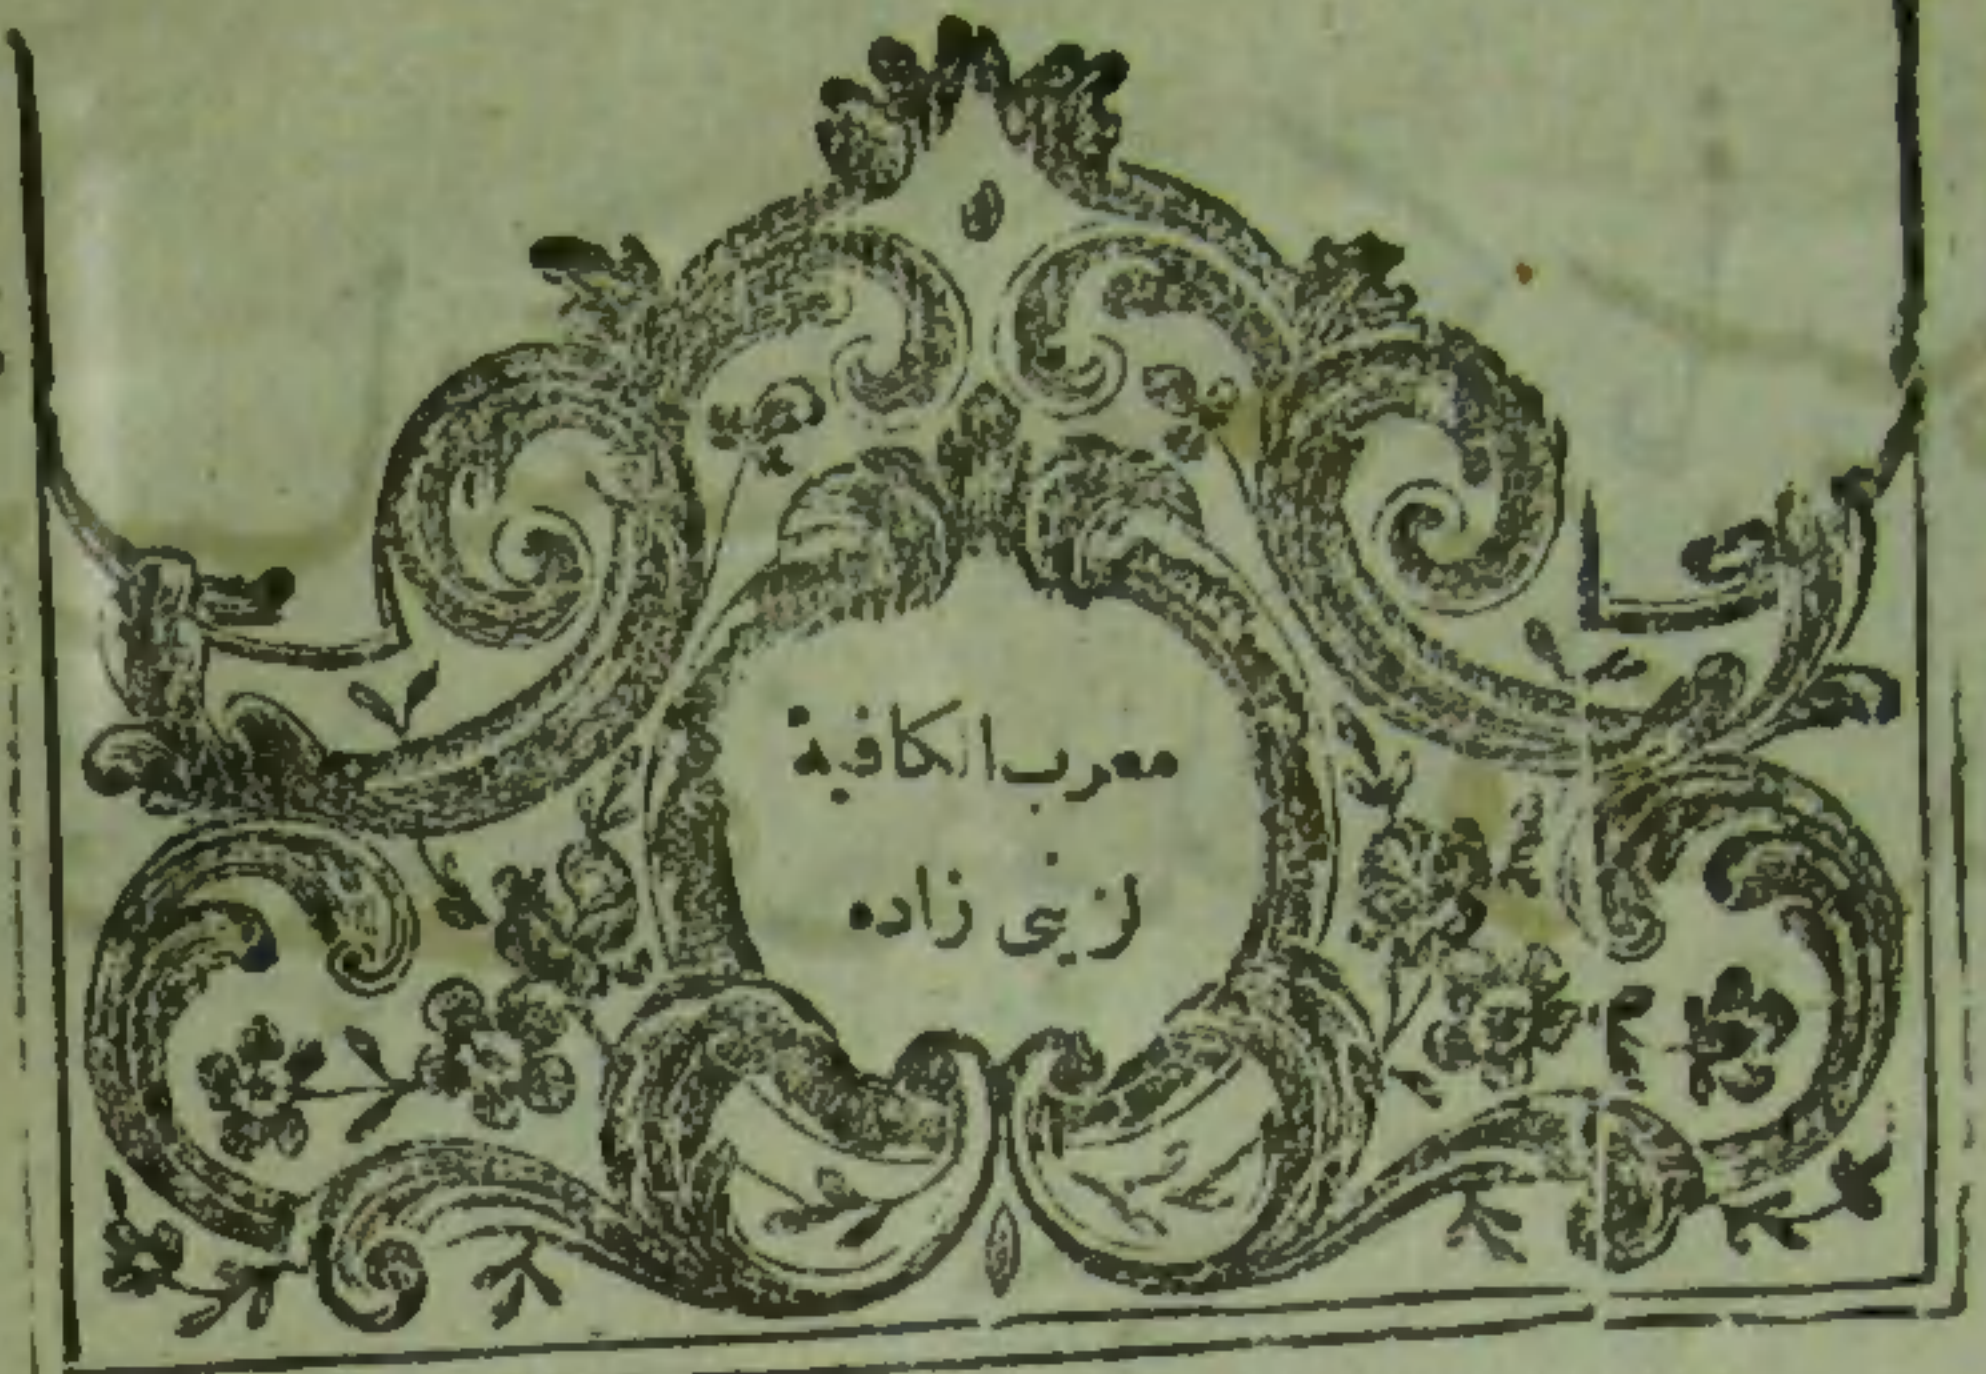 معرب الكافية
لزينى زاده